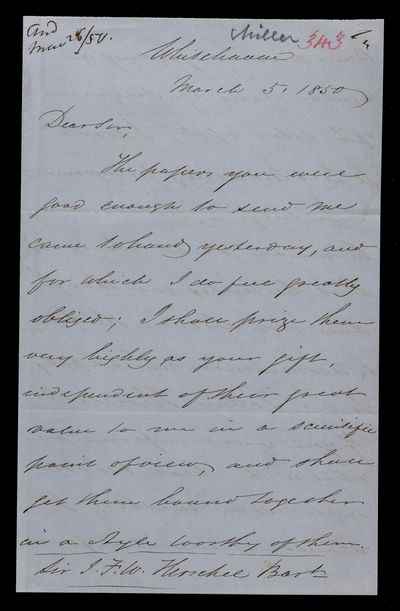 And
Mar 28/50.
Miller 343
Whitehaven
March 5. 1850
Dear Sir,
The papers you were
good enough to send me
came to hand yesterday, and
for which I do feel greatly
obliged; I shall prize them
very highly as your gift,
independent of their great
value to me in a scientific
point of view, and shall
get them bound together
in a style worthy of them.
Sir J. F. W. Herschel Bart